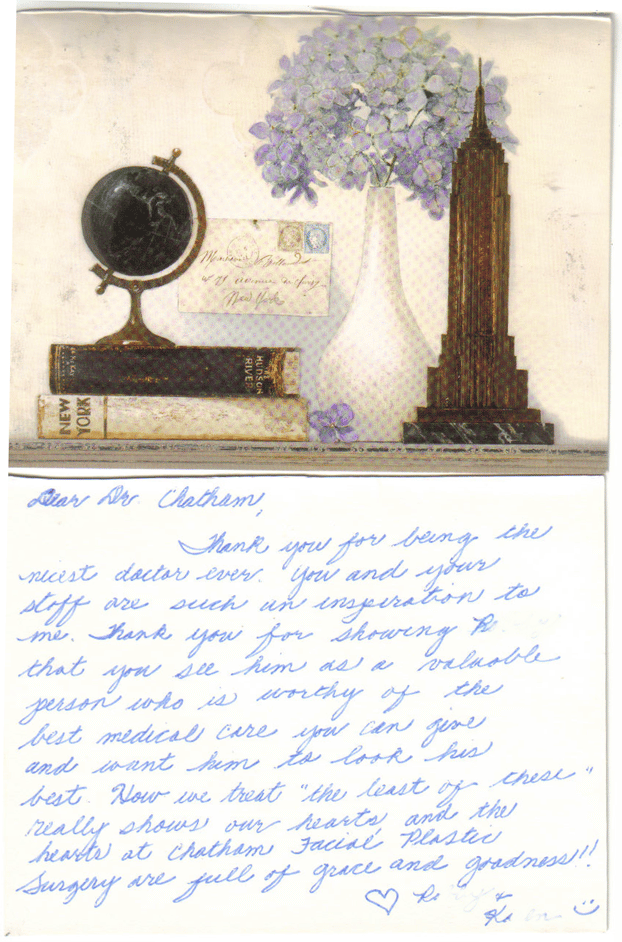 New York
THE HUDSON RIVER
NEW YORK
Dear Dr. Chatham,
Thank you for being the
nicest doctor ever. You and your
staff are such an inspiration to
me. Thank you for showing
that you see him as a valuable
person who is worthy of the
best medical care you can give
and want him to look his
best. How we treat "the least of these"
really shows our hearts, and the
hearts at Chatham Facial Plastic
Surgery are full of grace and goodness!!
&